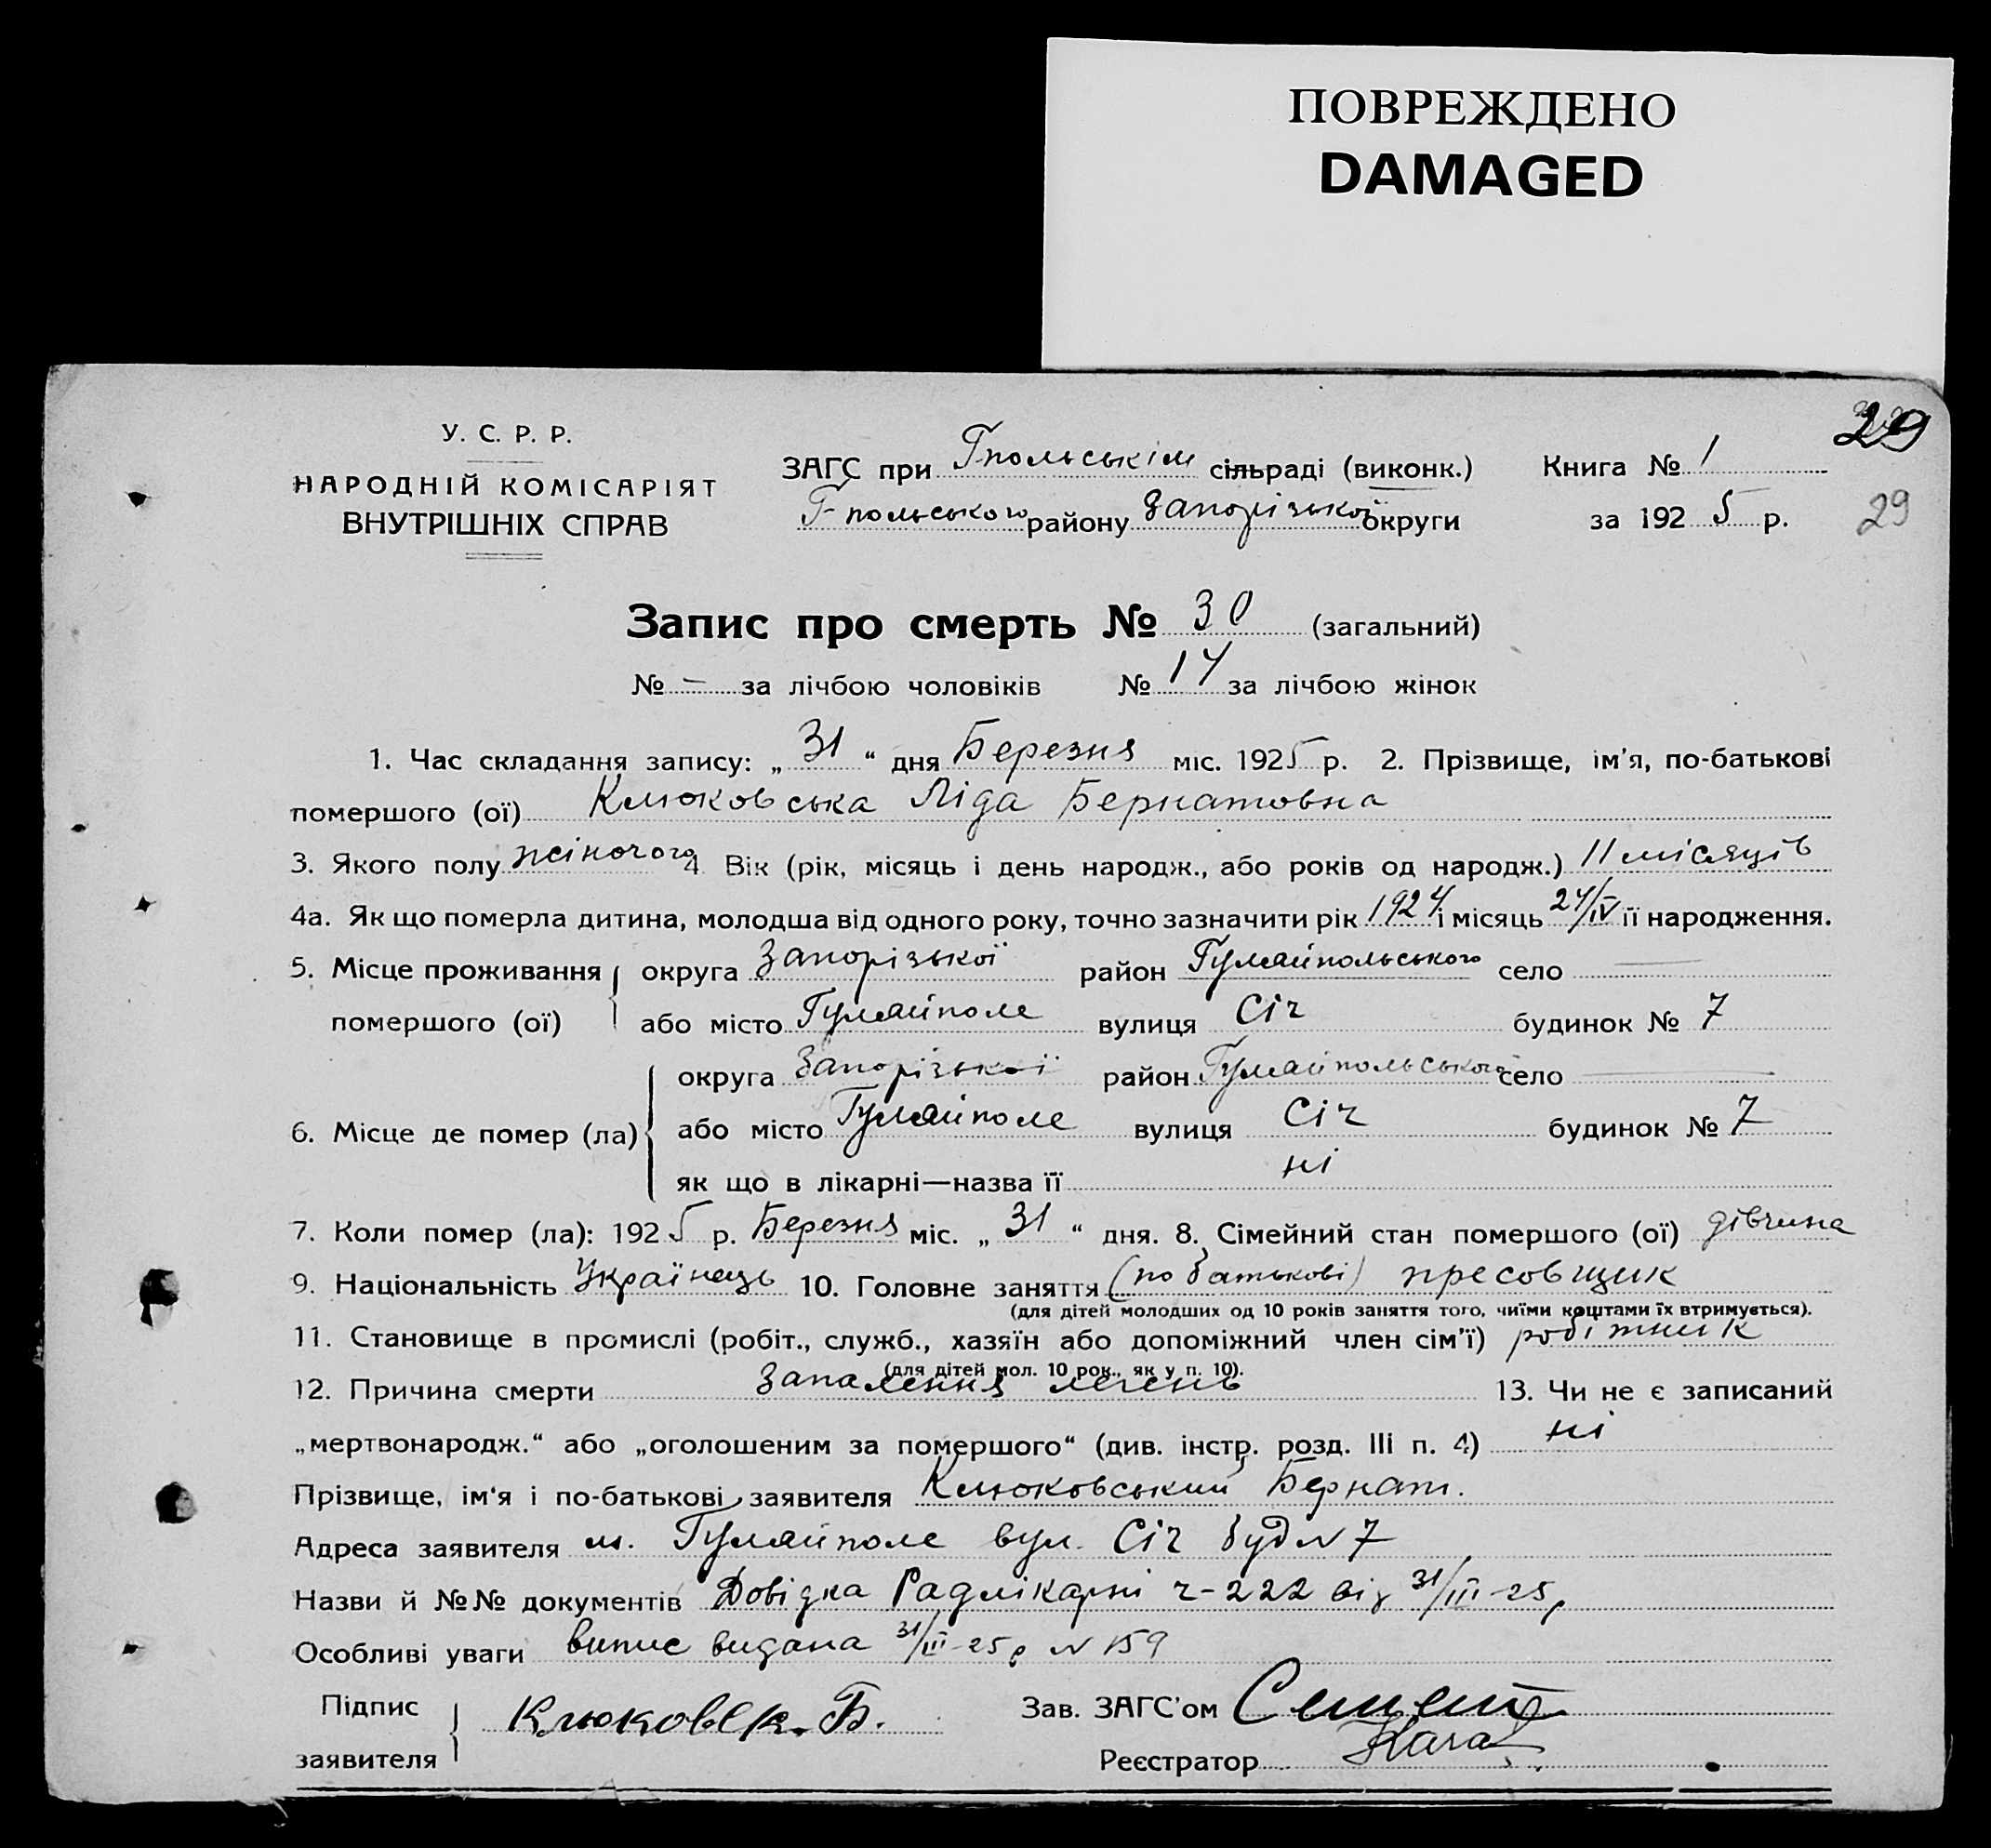 ПОВРЕЖДЕНО
DAMAGED
29
У. С. Р. Р.
НАРОДНІЙ КОМІСАРІЯТ
ВНУТРІШНІХ СПРАВ
ЗАГС при Г-польськім сільраді (виконк.) Книга № 1
Г-польського району Запорізької округи за 1925 р. 29
Запис про смерть № 30 (загальний)
№ - за лічбою чоловіків № 14 за лічбою жінок
1. Час складання запису: „31“ дня Березня міс. 1925 р. 2. Прізвище, ім'я, по-батькові
помершого (ої) Клюковська Ліда Бернатовна
3. Якого полу жіночого 4. Вік (рік, місяць і день народж., або років од народж.) 11 місяців
4а. Як що померла дитина, молодша від одного року, точно зазначити рік 1924 і місяць 24/IV її народження.
5. Місце проживання округа Запорізької район Гуляйпольського село —
помершого (ої) або місто Гуляйполе вулиця Січ будинок № 7
округа Запорізької район Гуляйпольського село —
6. Місце де помер (ла) або місто Гуляйполе вулиця Січ будинок № 7
як що в лікарні—назва її ні
7. Коли помер (ла): 1925 р. Березня міс. „31“ дня. 8. Сімейний стан помершого (ої) дівчина
9. Національність Українець 10. Головне заняття (по батькові) пресовщик
(для дітей молодших од 10 років заняття того, чиїми коштами їх втримується).
11. Становище в промислі (робіт., служб., хазяїн або допоміжний член сім'ї) робітник
(для дітей мол. 10 рок., як у п. 10).
12. Причина смерти Запалення легень 13. Чи не є записаний
„мертвонародж.“ або „оголошеним за помершого“ (див. інстр. розд. III п. 4) ні
Прізвище, ім'я і по-батькові заявителя Клюковський Бернат.
Адреса заявителя м. Гуляйполе вул. Січ буд N 7
Назви й №№ документів Довідка Радлікарні ч-222 від 31/III-25р
Особливі уваги випис видана 31/III-25р N 159
Підпис заявителя Клюковск. Б. Зав. ЗАГС'ом
Реєстратор